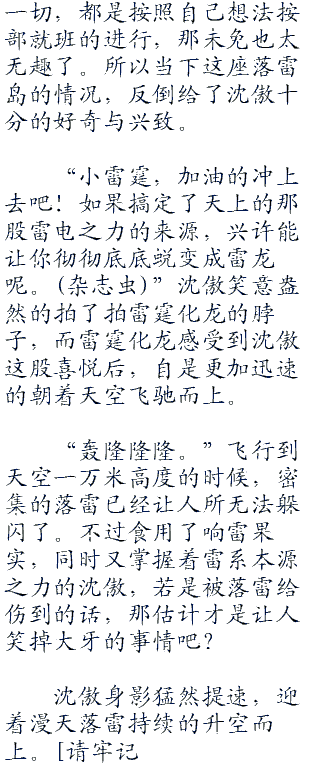 一切，都是按照自己想法按
部就班的进行，那未免也太
无趣了。所以当下这座落雷
岛的情况，反倒给了沈傲十
分的好奇与兴致。
“小雷霆，加油的冲上
去吧！如果搞定了天上的那
股雷电之力的来源，兴许能
让你彻彻底底蜕变成雷龙
呢。(杂志虫)”沈傲笑意盎
然的拍了拍雷霆化龙的脖
子，而雷霆化龙感受到沈傲
这股喜悦后，自是更加迅速
的朝着天空飞驰而上。
“轰隆隆隆。”飞行到
天空一万米高度的时候，密
集的落雷已经让人所无法躲
闪了。不过食用了响雷果
实，同时又掌握着雷系本源
之力的沈傲，若是被落雷给
伤到的话，那估计才是让人
笑掉大牙的事情吧？
沈傲身影猛然提速，迎
着漫天落雷持续的升空而
上。[请牢记